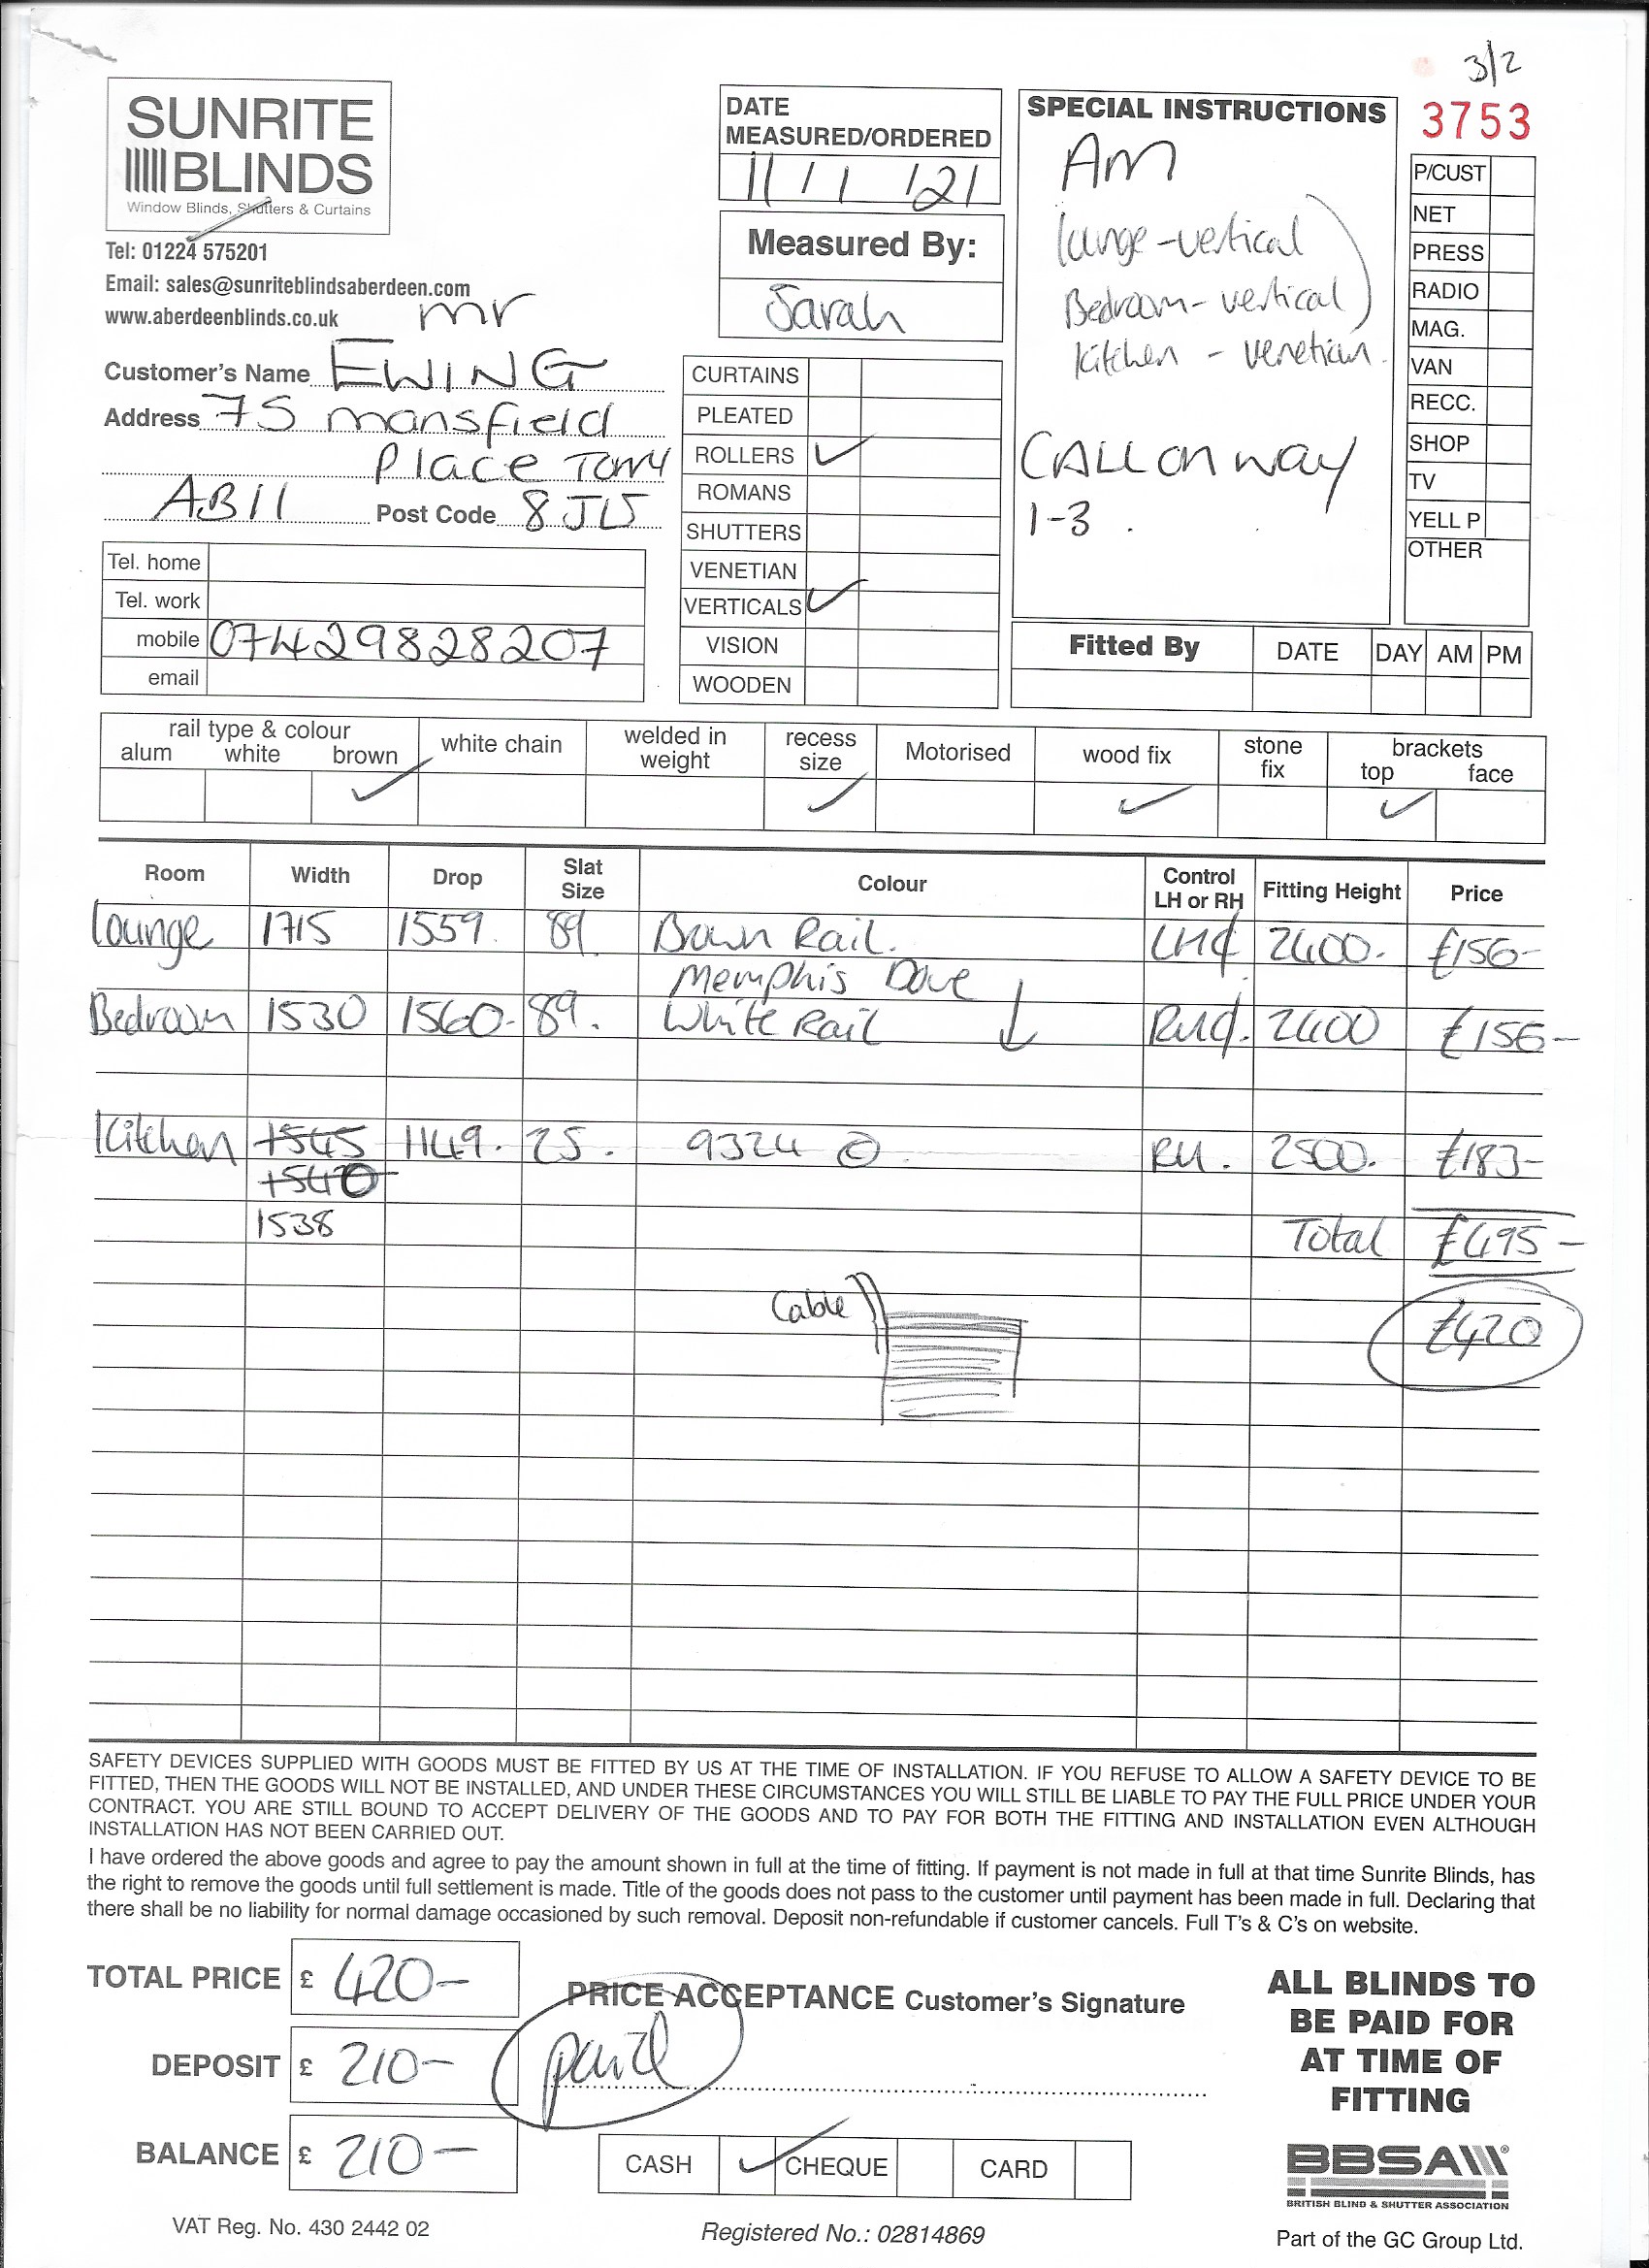 3/2
SUNRITE
BLINDS
Window Blinds, Shutters & Curtains
Tel: 01224 575201
Email: sales@sunriteblindsaberdeen.com
www.aberdeenblinds.co.uk
mr
Customer's Name EWING
Address 75 mansfield
Place Torry
AB11 Post Code 8JU
Tel. home
Tel. work
mobile 07429828207
email
DATE
MEASURED/ORDERED
11/1/21
Measured By:
Sarah
CURTAINS
PLEATED
ROLLERS ✓
ROMANS
SHUTTERS
VENETIAN
VERTICALS ✓
VISION
WOODEN
SPECIAL INSTRUCTIONS
AM
lounge - vertical
Bedroom - vertical
kitchen - venetian.
CALL on way
1-3.
3753
P/CUST
NET
PRESS
RADIO
MAG.
VAN
RECC.
SHOP
TV
YELL P
OTHER
Fitted By DATE DAY AM PM
rail type & colour
alum white brown ✓
white chain
welded in
weight
recess
size ✓
Motorised
wood fix ✓
stone
fix
brackets
top ✓ face
Room Width Drop Slat Size Colour Control LH or RH Fitting Height Price
Lounge 1715 1559. 89 Brown Rail. 2400. £156-
Memphis Dove
Bedroom 1530 1560. 89. White Rail 2400 £156-
Kitchen 1545 1149. 25. 9324 RH. 2500. £183-
1540
1538
Total £495-
Cable
£420
SAFETY DEVICES SUPPLIED WITH GOODS MUST BE FITTED BY US AT THE TIME OF INSTALLATION. IF YOU REFUSE TO ALLOW A SAFETY DEVICE TO BE
FITTED, THEN THE GOODS WILL NOT BE INSTALLED, AND UNDER THESE CIRCUMSTANCES YOU WILL STILL BE LIABLE TO PAY THE FULL PRICE UNDER YOUR
CONTRACT. YOU ARE STILL BOUND TO ACCEPT DELIVERY OF THE GOODS AND TO PAY FOR BOTH THE FITTING AND INSTALLATION EVEN ALTHOUGH
INSTALLATION HAS NOT BEEN CARRIED OUT.
I have ordered the above goods and agree to pay the amount shown in full at the time of fitting. If payment is not made in full at that time Sunrite Blinds, has
the right to remove the goods until full settlement is made. Title of the goods does not pass to the customer until payment has been made in full. Declaring that
there shall be no liability for normal damage occasioned by such removal. Deposit non-refundable if customer cancels. Full T's & C's on website.
TOTAL PRICE £ 420-
DEPOSIT £ 210-
BALANCE £ 210-
PRICE ACCEPTANCE Customer's Signature
paid
CASH ✓ CHEQUE CARD
ALL BLINDS TO
BE PAID FOR
AT TIME OF
FITTING
BBSA
BRITISH BLIND & SHUTTER ASSOCIATION
VAT Reg. No. 430 2442 02
Registered No.: 02814869
Part of the GC Group Ltd.